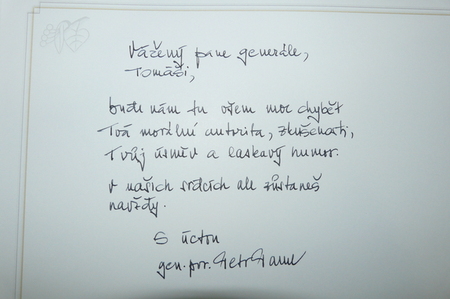 Vážený pane generále,
Tomáši,
bude nám tu všem moc chybět
Tvá morální autorita, zkušenosti,
Tvůj úsměv a laskavý humor.
V našich srdcích ale zůstaneš
navždy.
S úctou
gen. por. Petr Pavel